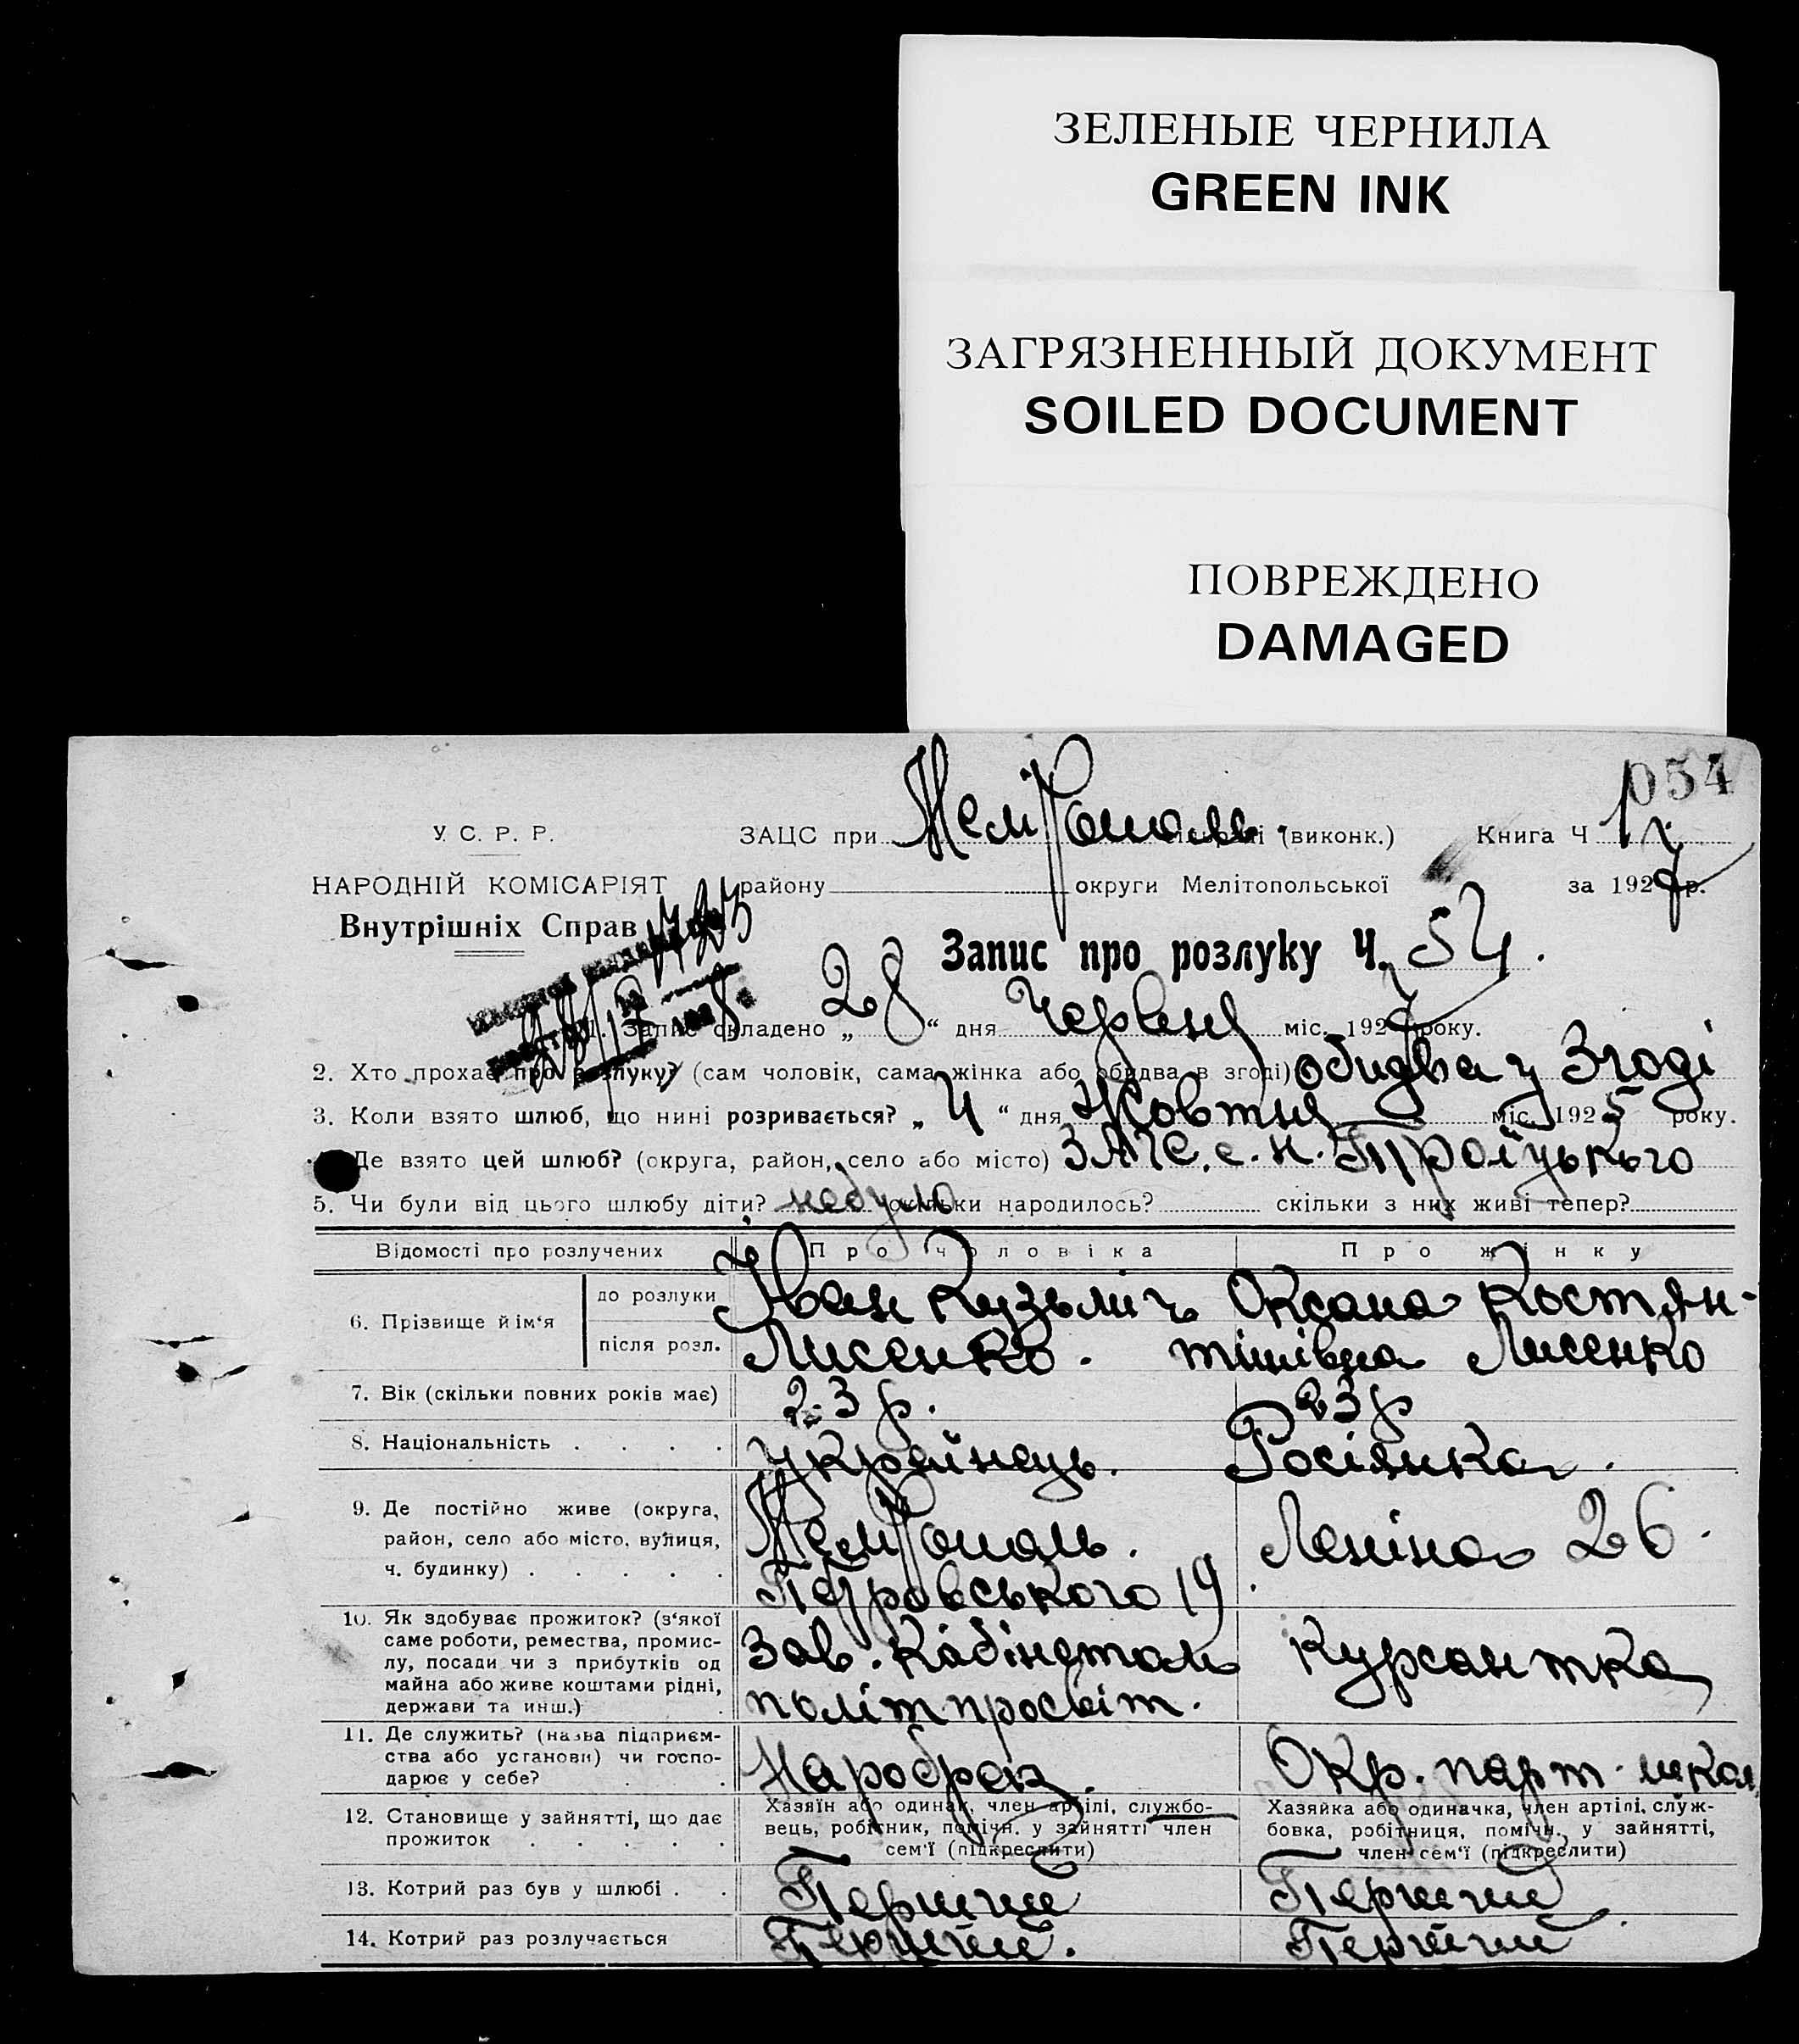 ЗЕЛЕНЫЕ ЧЕРНИЛА
GREEN INK
ЗАГРЯЗНЕННЫЙ ДОКУМЕНТ
SOILED DOCUMENT
ПОВРЕЖДЕНО
DAMAGED
054
У. С. Р. Р.
ЗАЦС при Мелітополь (виконк.) Книга Ч 17
НАРОДНІЙ КОМІСАРІЯТ
району округи Мелітопольської за 1927 р.
Внутрішніх Справ
Запис про розлуку Ч. 54.
1. Запис складено „ 28 “ дня Червня міс. 1927 року.
2. Хто прохає про розлуку? (сам чоловік, сама жінка або обидва в згоді) обидва у Згоді
3. Коли взято шлюб, що нині розривається? „ 4 “ дня Жовтня міс. 1925 року.
4. Де взято цей шлюб? (округа, район, село або місто) ЗАГС. с. Н. Троїцького
5. Чи були від цього шлюбу діти? небуло скільки народилось? скільки з них живі тепер?
Відомості про розлучених Про чоловіка Про жінку
6. Прізвище й ім‘я
до розлуки Иван Кузьмич Оксана Костян-
після розл. Лисенко. тінівна Лисенко
7. Вік (скільки повних років має) 23 р. 23 р
8. Національність . . . . українець. Росіянка.
9. Де постійно живе (округа, район, село або місто, вулиця, ч. будинку) . . . . .
Мелітополь. Петровського 19
Леніна 26.
10. Як здобуває прожиток? (з‘якої саме роботи, ремества, промис-
лу, посади чи з прибутків од
майна або живе коштами рідні,
держави та инш.)
Зав. Кабінетом
політпросвіт.
Курсантка
11. Де служить? (назва підприєм-
ства або установи) чи госпо-
дарює у себе?
Наробраз.
Окр. парт. школ
12. Становище у зайнятті, що дає
прожиток . . . . .
Хазяїн або одинак, член артілі, службо-
вець, робітник, помічн. у зайнятті член
сем‘ї (підкреслити)
Хазяйка або одиначка, член артілі, служ-
бовка, робітниця, помічн., у зайнятті,
член сем‘ї (підкреслити)
13. Котрий раз був у шлюбі . . Перший Перший
14. Котрий раз розлучається Перший. Перший